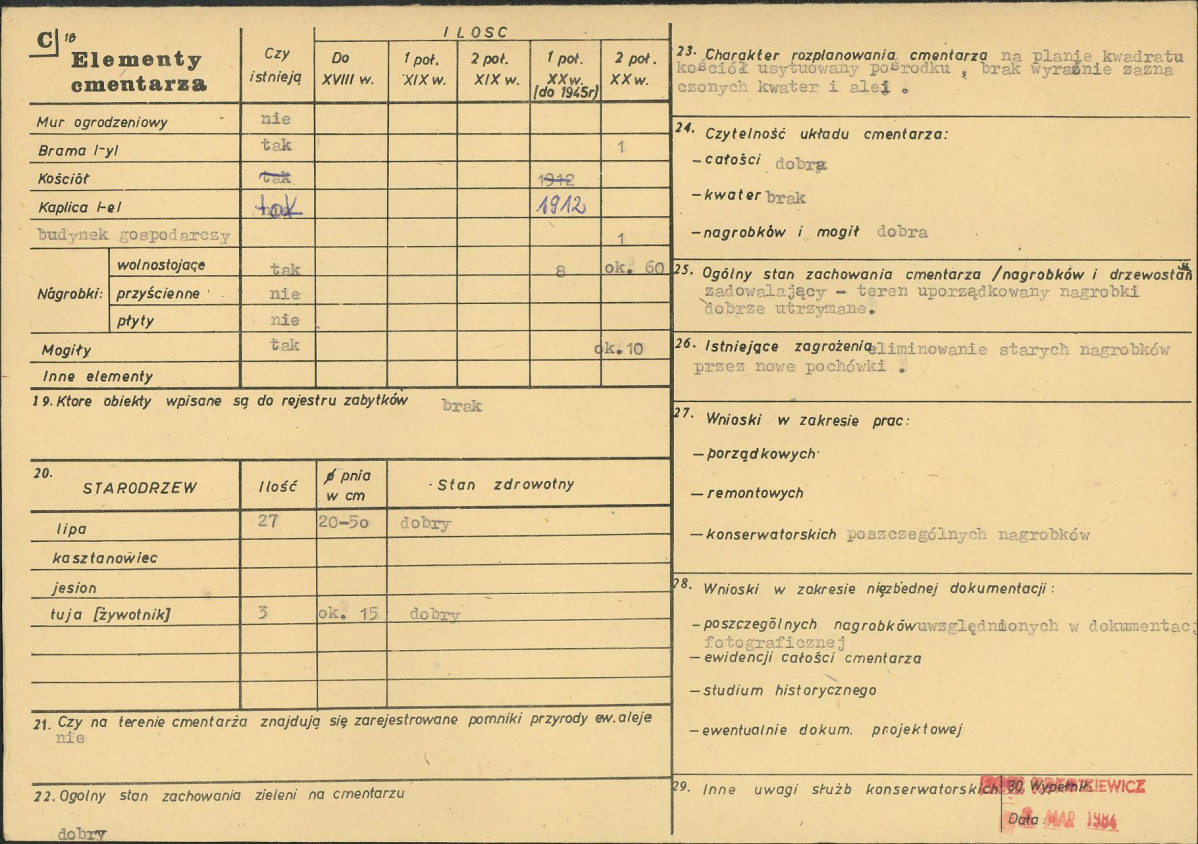 C 18
Elementy
cmentarza
Czy
istnieją
ILOSC
Do
XVIII w.
1 poł.
XIX w.
2 poł.
XIX w.
1 poł.
XX w.
(do 1945r)
2 poł.
XX w.
Mur ogrodzeniowy nie
Brama l-yl tak 1
Kościół tak 1912
Kaplica l-el nie tak 1912
budynek gospodarczy 1
Nagrobki:
wolnostojące tak 8 ok. 60
przyścienne nie
płyty nie
Mogiły tak ok.10
Inne elementy
19. Ktore obiekty wpisane są do rejestru zabytków brak
20.
STARODRZEW Ilość ø pnia
w cm
Stan zdrowotny
lipa 27 20-50 dobry
kasztanowiec
jesion
tuja [żywotnik] 3 ok. 15 dobry
21. Czy na terenie cmentarża znajdują się zarejestrowane pomniki przyrody ew. aleje
nie
22. Ogolny stan zachowania zieleni na cmentarzu
dobry
23. Charakter rozplanowania cmentarza na planie kwadratu
kościół usytuowany pośrodku , brak wyraźnie zazna
czonych kwater i alej .
24. Czytelność układu cmentarza:
— całości dobra
— kwater brak
— nagrobków i mogił dobra
25. Ogólny stan zachowania cmentarza /nagrobków i drzewostan
zadowalający - teren uporządkowany nagrobki
dobrze utrzymane.
26. Istniejące zagrożenia eliminowanie starych nagrobków
przez nowe pochówki .
27. Wnioski w zakresie prac:
— porządkowych
— remontowych
— konserwatorskich poszczególnych nagrobków
28. Wnioski w zakresie niezbędnej dokumentacji:
— poszczególnych nagrobków uwzględnionych w dokumentacj
fotograficznej
— ewidencji całości cmentarza
— studium historycznego
— ewentualnie dokum. projektowej
29. Inne uwagi służb konserwatorskich
30. Wypełnił:
Data: MAR 1984